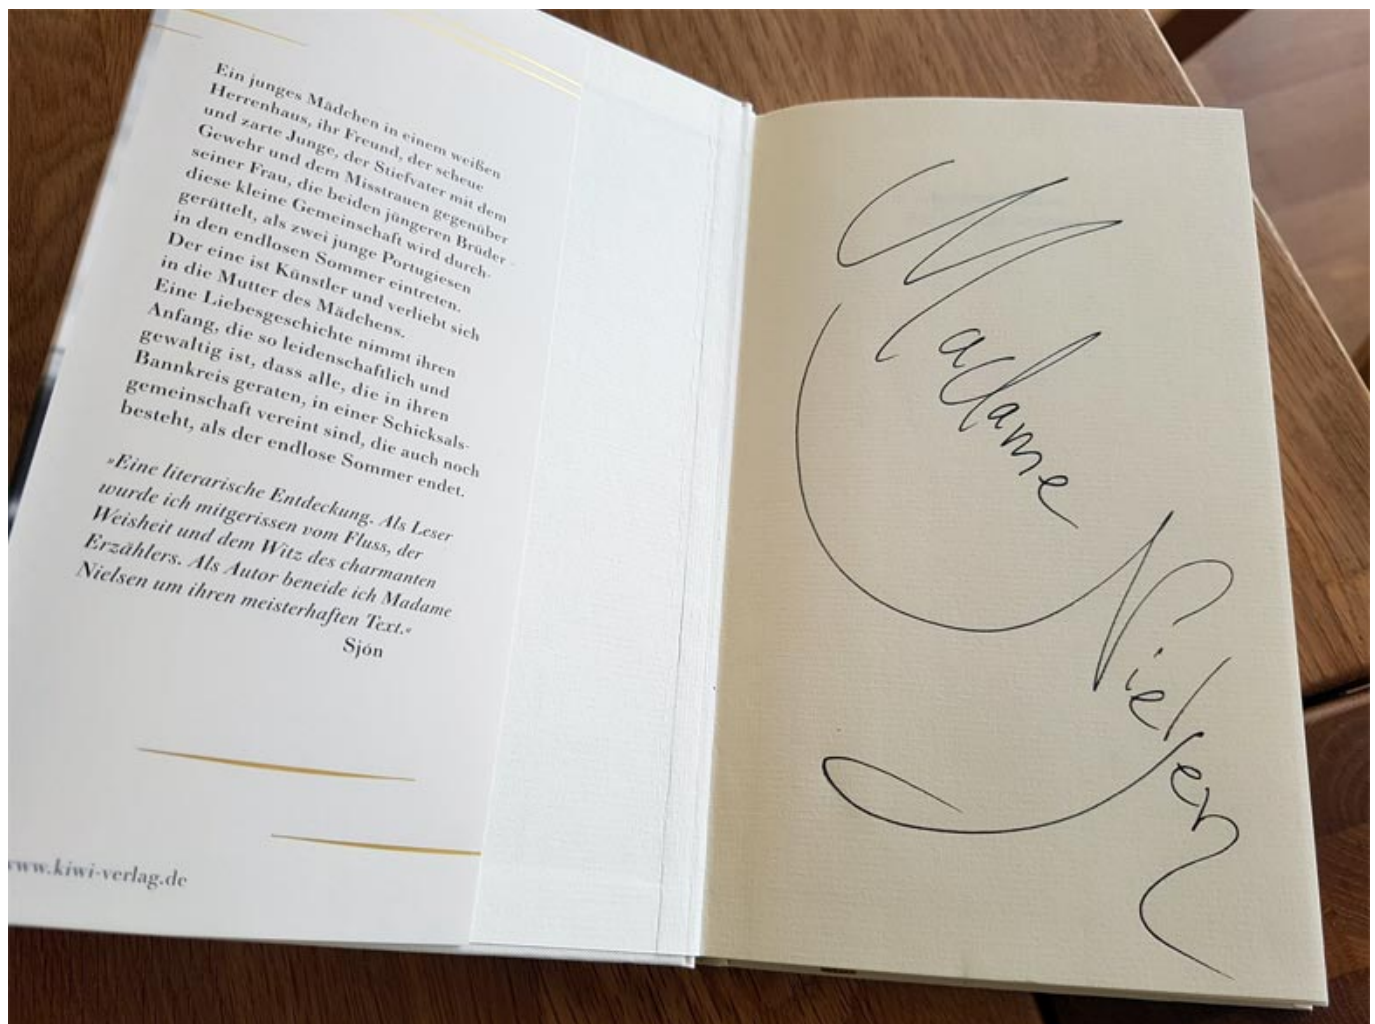 Ein junges Mädchen in einem weißen
Herrenhaus, ihr Freund, der scheue
und zarte Junge, der Stiefvater mit dem
Gewehr und dem Misstrauen gegenüber
seiner Frau, die beiden jüngeren Brüder -
diese kleine Gemeinschaft wird durch-
gerüttelt, als zwei junge Portugiesen
in den endlosen Sommer eintreten.
Der eine ist Künstler und verliebt sich
in die Mutter des Mädchens.
Eine Liebesgeschichte nimmt ihren
Anfang, die so leidenschaftlich und
gewaltig ist, dass alle, die in ihren
Bannkreis geraten, in einer Schicksals-
gemeinschaft vereint sind, die auch noch
besteht, als der endlose Sommer endet.
»Eine literarische Entdeckung. Als Leser
wurde ich mitgerissen vom Fluss, der
Weisheit und dem Witz des charmanten
Erzählers. Als Autor beneide ich Madame
Nielsen um ihren meisterhaften Text.«
Sjón
www.kiwi-verlag.de
Madame
Nielsen